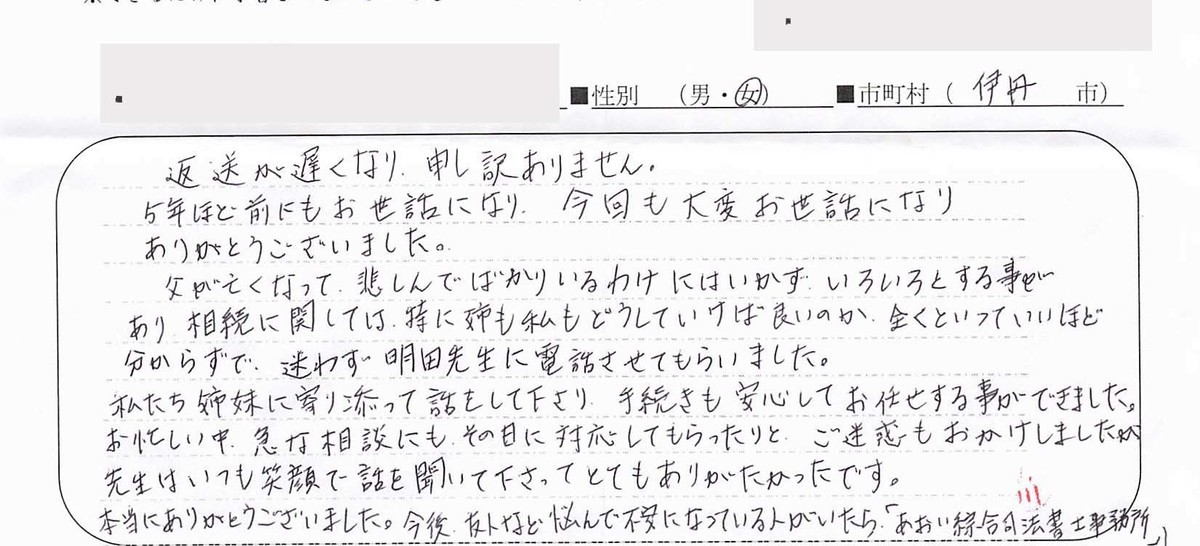 ■性別 （男・女） ■市町村（ 伊丹 市）
返送が遅くなり、申し訳ありません。
5年ほど前にもお世話になり、今回も大変お世話になり
ありがとうございました。
父が亡くなって、悲しんでばかりいるわけにはいかず、いろいろとする事が
あり、相続に関しては、特に姉も私もどうしていけば良いのか、全くといっていいほど
分からずで、迷わず明田先生に電話させてもらいました。
私たち姉妹に寄り添って話をして下さり、手続きも安心してお任せする事ができました。
お忙しい中、急な相談にも、その日に対応してもらったりと、ご迷惑もおかけしましたが
先生はいつも笑顔で話を聞いて下さってとてもありがたかったです。
本当にありがとうございました。今後、友人など悩んで不安になっている人がいたら、「あおい綜合司法書士事務所」